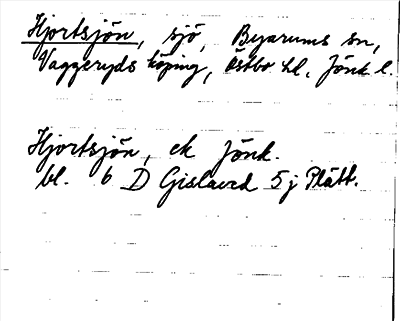 Hjortsjön, sjö, Byarums sn,
Vaggeryds köping, Östbo hd, Jönk l.
Hjortsjön, ek Jönk.
bl. 6 D Gislaved 5 j Plätt.